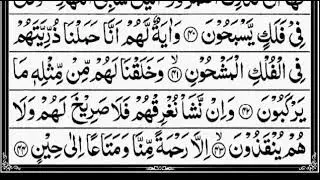 فِیْ فَلَكٍ یَّسْبَحُوْنَ ﴿۴۰﴾ وَاٰیَةٌ لَّهُمْ اَنَّا حَمَلْنَا ذُرِّیَّتَهُمْ
فِی الْفُلْكِ الْمَشْحُوْنِ ﴿۴۱﴾ وَخَلَقْنَا لَهُمْ مِّنْ مِّثْلِهٖ مَا
یَرْكَبُوْنَ ﴿۴۲﴾ وَاِنْ نَّشَاْ نُغْرِقْهُمْ فَلَا صَرِیْخَ لَهُمْ وَلَا
هُمْ یُنْقَذُوْنَ ﴿۴۳﴾ اِلَّا رَحْمَةً مِّنَّا وَمَتَاعًا اِلٰی حِیْنٍ ﴿۴۴﴾